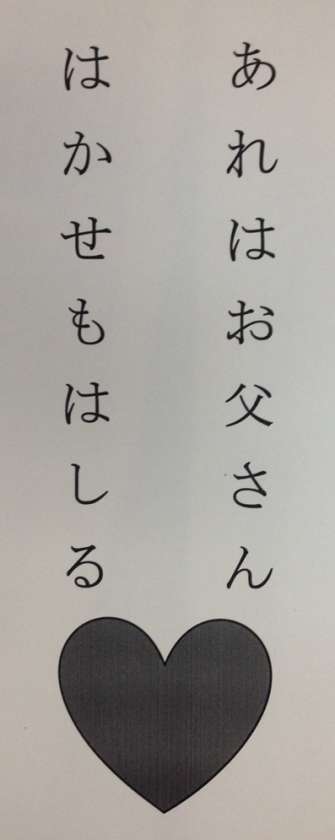 あれはお父さん
はかせもはしる